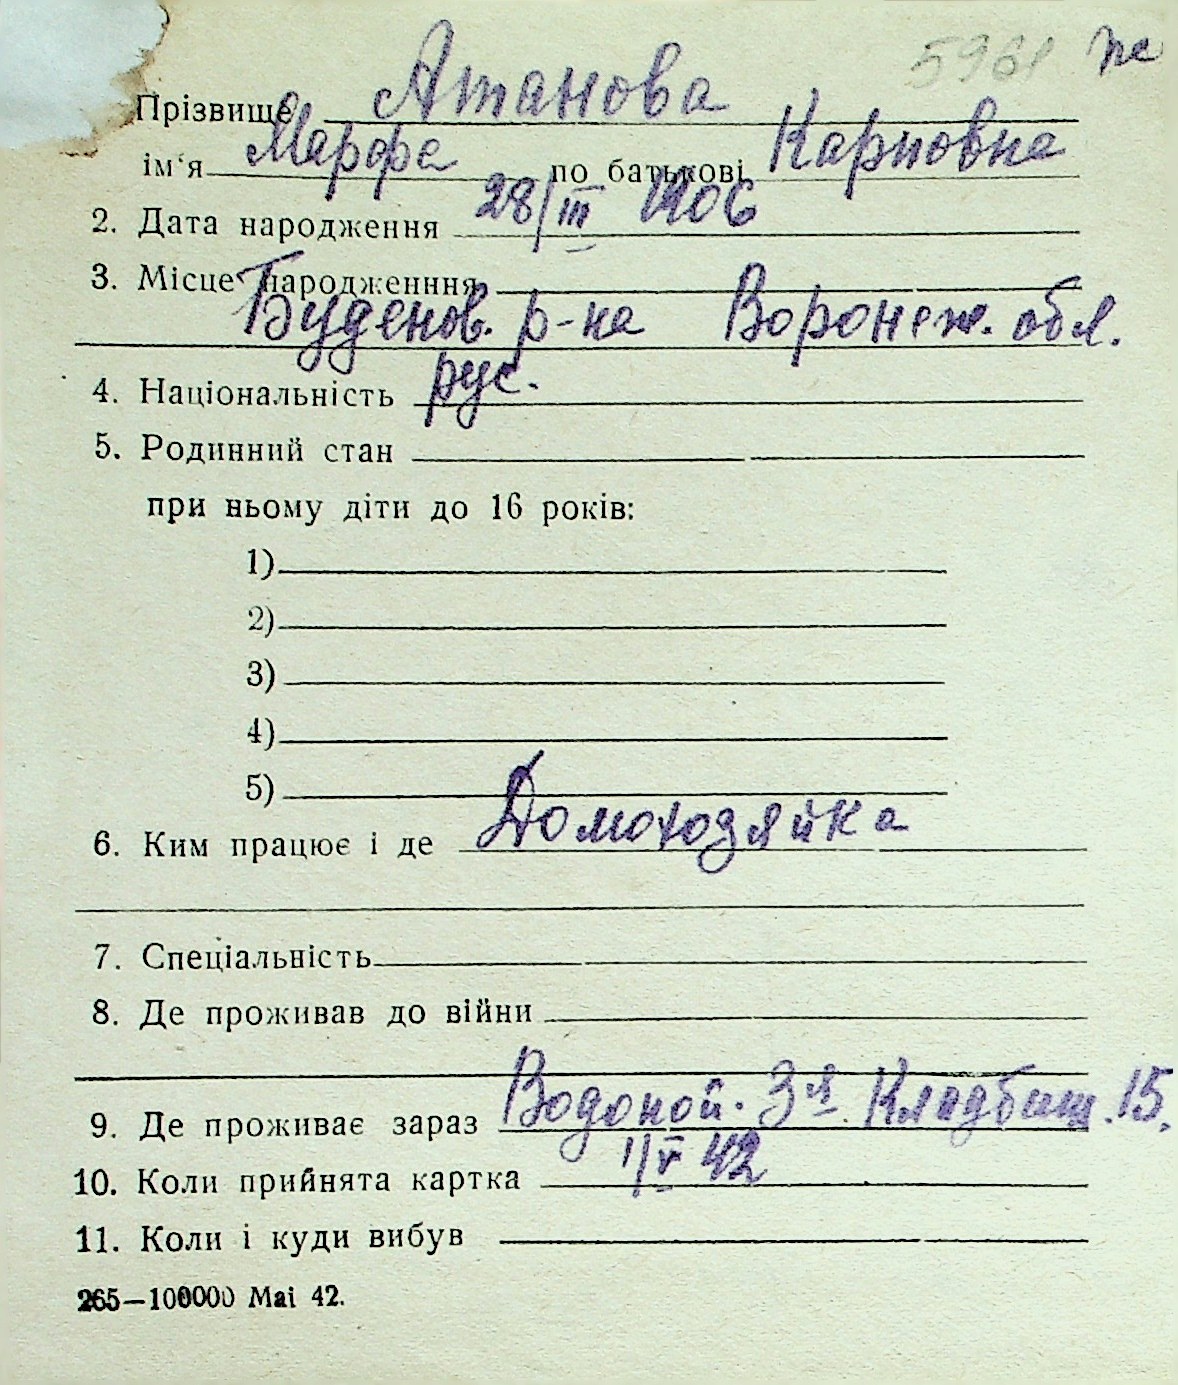 5961 пе
Прізвище Атанова
ім‘я Марфа по батькові Карповна
2. Дата народження 28/III 1906
3. Місце народженння
Буденов. р-на Воронеж. обл.
4. Національність рус.
5. Родинний стан
при ньому діти до 16 років:
1)
2)
3)
4)
5)
6. Ким працює і де Домохозяйка
7. Спеціальність
8. Де проживав до війни
9. Де проживає зараз Водоной. 3я Кладбищ. 15.
10. Коли прийнята картка 1/V 42
11. Коли і куди вибув
265—100000 Mai 42.